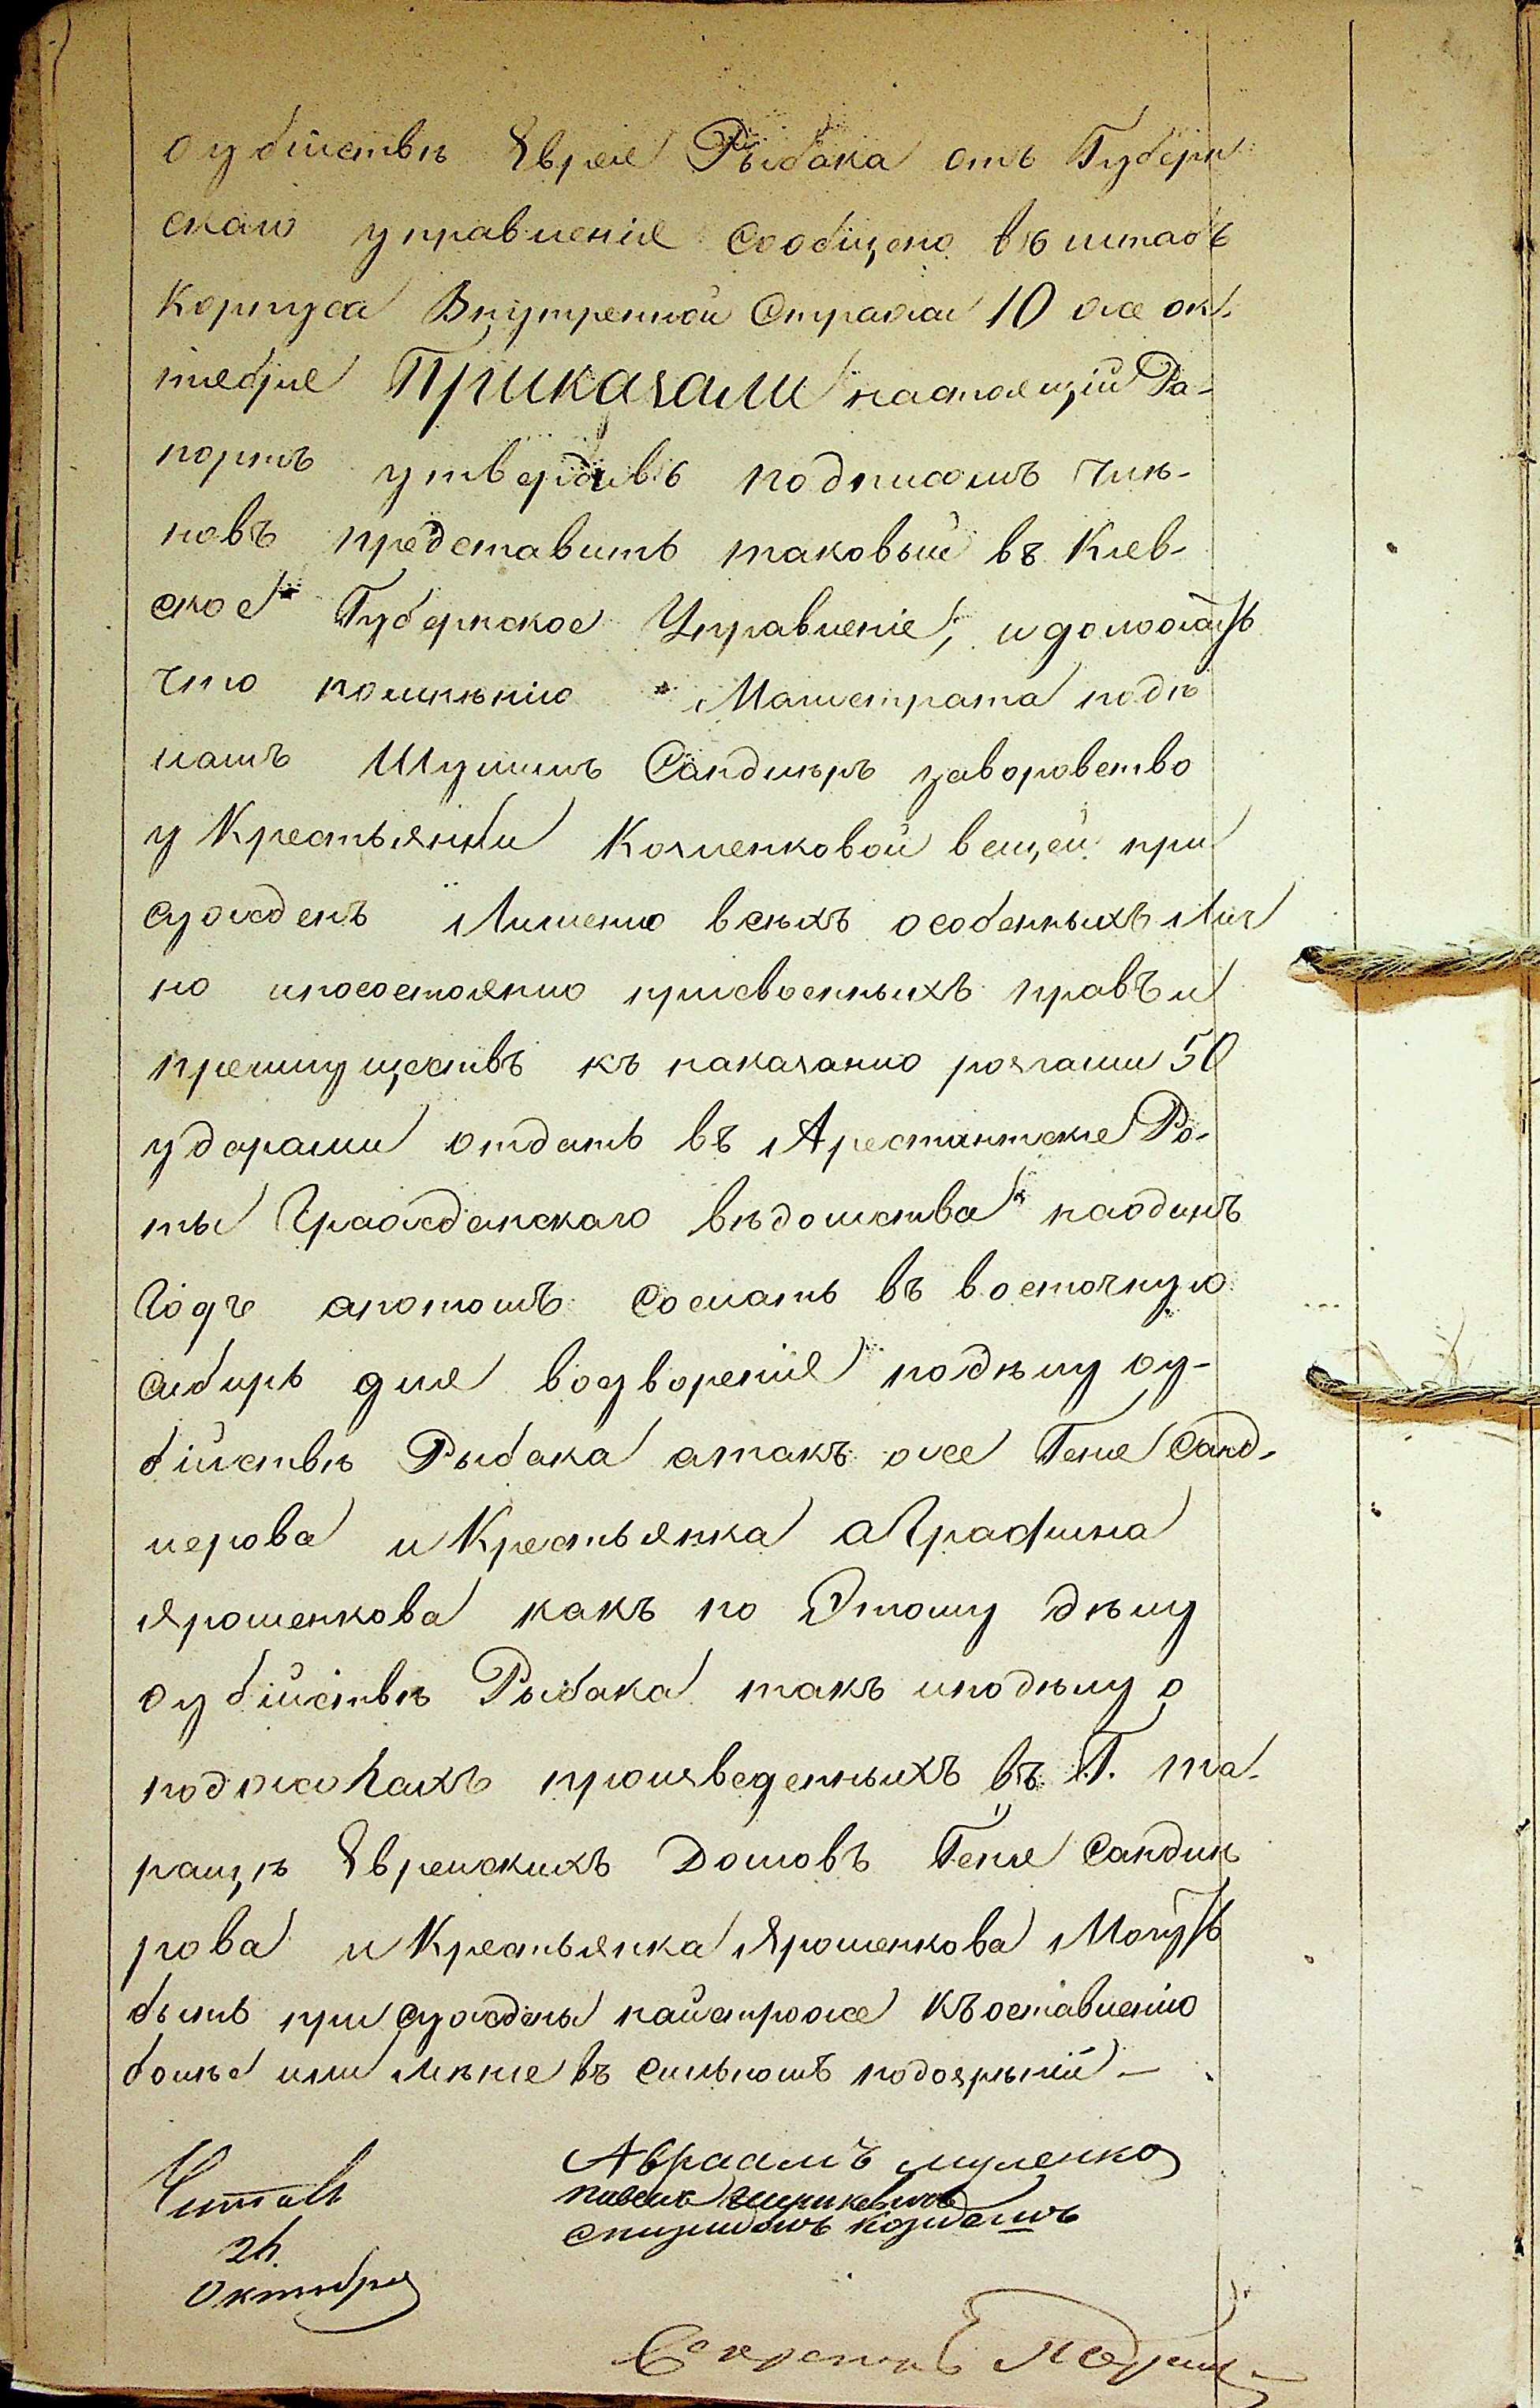 о убійствѣ Еврея Рыбака отъ Губерн
скаго управленія Сообщено въ штабъ
Корпуса Внутренной Стражи 10 же ок-
тября Приказали настоящій Ра-
портъ утвердивъ подписомъ член-
новъ представить таковый въ Кіев-
ское Губернское Управленіе, и доложить
что помнѣнію Магистрата под
натъ Шулимъ Сандлѣръ заворовство
у Крестьянки Козленковой вещей при
сужденъ Лишенію всѣхъ особенныхъ Лич
но ипосостоянію присвоенныхъ правъ и
преимуществъ къ наказанію розгами 50
ударами отдать въ Арестантскіе Ро-
ты Гражданскаго вѣдомства наодинъ
Годъ апотомъ Сослать въ восточную
Сибирь для водворенія подѣлу оу-
бійствѣ Рыбака атакъ же Геня Санд-
лерова и Крестьянка Аграфина
Ярошенкова какъ по Этому дѣлу
оубійствѣ Рыбака такъ иподѣлу о
поджогахъ произведенныхъ въ Г. Та-
ращѣ Еврейскихъ Домовъ Геня Сандлѣ
рова и Крестьянка Ярошенкова Могутъ
быть присуждены найстроже Къоставленію
болѣе или мѣние въ сильномъ подозрѣніи —
Читалъ
24
Октября
Авраамъ
Секретарь